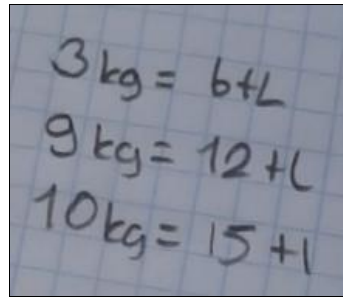 3kg = 6+L
9kg = 12+L
10kg = 15+l